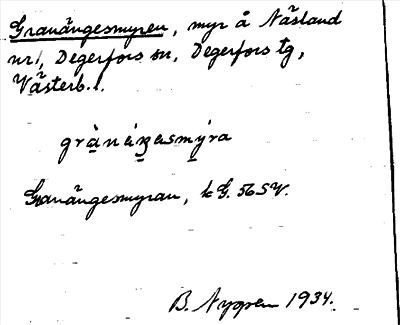 Granängesmyren, myr å Näsland
nr 1, Degerfors sn, Degerfors tg,
Västerb. l.
grànáŋesmy̆ra
Granängesmyran, k G. 56 SV.
B. Nygren 1934.